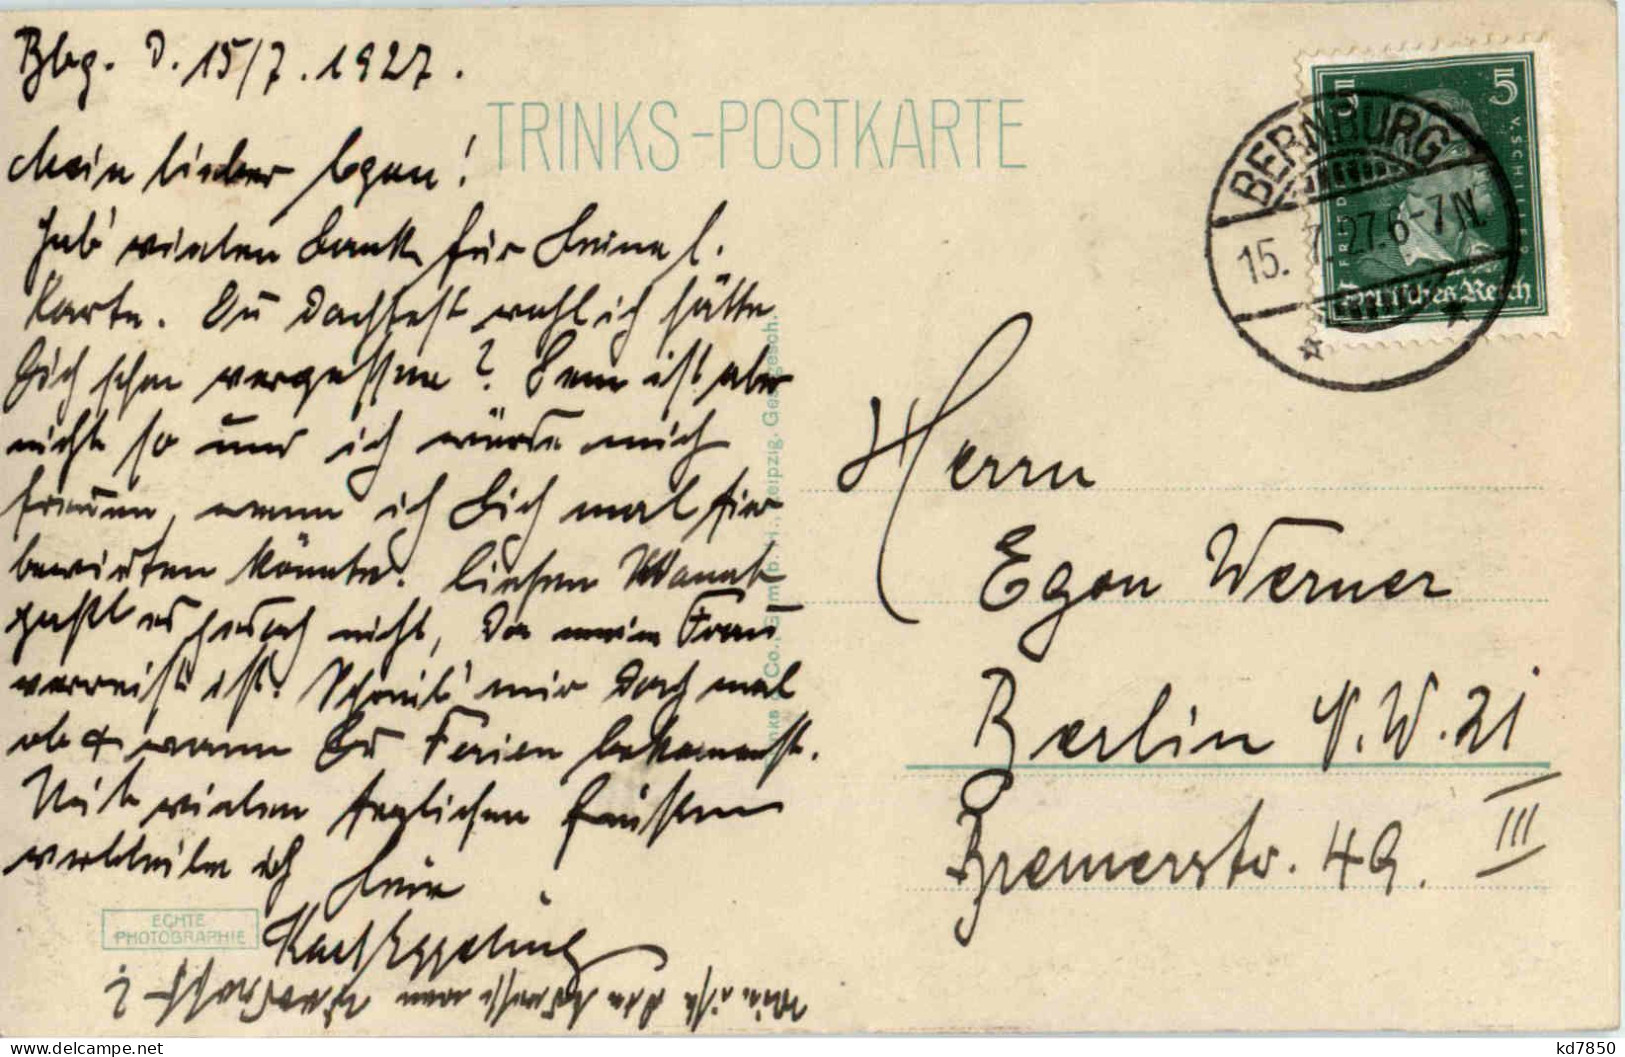 Bbg. d. 15/7. 1927.
Mein lieber Egon!
Hab' vielen Dank für Deine l.
Karte. Du dachtest wohl ich hätte
Dich schon vergessen? Dem ist aber
nicht so und ich würde mich
freuen, wenn ich Dich mal hier
bewirten könnte. Diesen Monat
paßt es jedoch nicht, da meine Frau
verreist ist. Schreib' mir doch mal
ob + wann Du Ferien bekommst.
Mit vielen herzlichen Grüßen
verbleibe ich Dein
Karl Eggeling
Wie ist die Adresse von
TRINKS-POSTKARTE
ECHTE
PHOTOGRAPHIE
Trinks & Co. G.m.b.H., Leipzig. Ges. gesch.
BERNBURG
15. 7. 27. 6-7 N.
5
5
FRIEDR. V. SCHILLER
Deutsches Reich
Herrn
Egon Werner
Berlin N.W. 21
Bremerstr. 49. III
kd7850